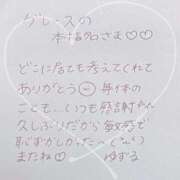 グレースの
本指名さま♡♡
どこに居ても考えてくれて
ありがとう 身体の
ことも、いつも感謝
久しぶりだから敏感で
恥ずかしかった〜
またね♡ ゆずる